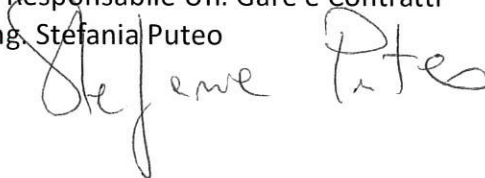 Responsabile Uff. Gare e Contratti
ng. Stefania Puteo
Stefania Puteo